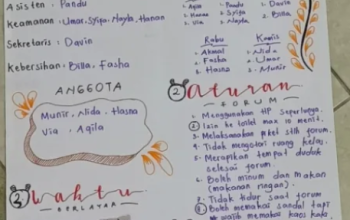 Asisten : Pandu
Keamanan : Umar, Syifa, Nayla, Hanan
Sekretaris : Davin
Kebersihan : Billa, Fasha
ANGGOTA
Munir, Nida, Hasna
Via, Aqila
3 Waktu
BERLAYAR
Aqila
Hanan
Via
Pandu
Syifa
Nayla
Davin
Billa
Rabu
Ahmad
Fasha
Hasna
Kamis
Nida
Umar
Munir
2 aturan
FORUM
1. Menggunakan HP seperlunya.
2. izin ke toilet max 10 menit.
3. Melaksanakan piket stlh forum.
4. Tidak mengotori ruang kelas.
5. Merapikan tempat duduk
selesai forum.
6. Boleh minum dan makan
(makanan ringan).
7. Tidak tidur saat forum
8. Boleh memakai sandal tapi
wajib memakai kaos kaki.